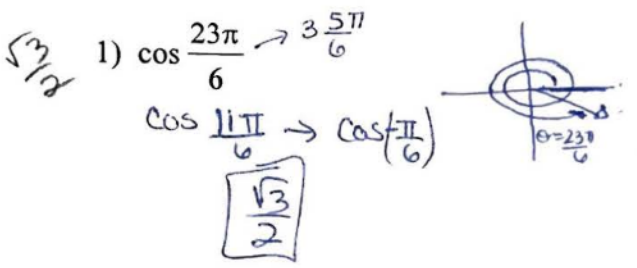 √3/2 1) cos 23π/6 → 3 5π/6
cos 11π/6 → cos(-π/6)
θ=23π/6
√3/2